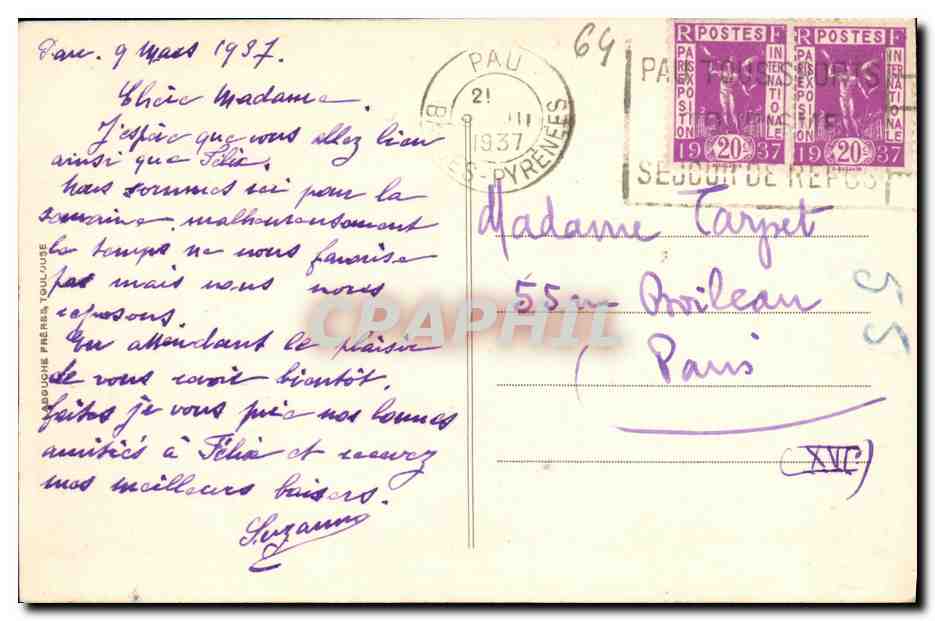 Pau. 9 mars 1937.
Chère Madame.
J'espère que vous allez bien
ainsi que Félix.
Nous sommes ici pour la
semaine, malheureusement
le temps ne nous favorise
pas mais nous nous
reposons.
En attendant le plaisir
de vous revoir bientôt,
faites je vous prie nos bonnes
amitiés à Félix et recevez
mes meilleurs baisers.
Suzanne
LABOUCHE FRÈRES, TOULOUSE
64
PAU
21
9 III
1937
BSES-PYRENEES
PAU TOUS SPORTS
TOURISME
SEJOUR DE REPOS
R POSTES F
PARIS EXPOSITION
INTERNATIONALE
19 20c 37
R POSTES F
PARIS EXPOSITION
INTERNATIONALE
19 20c 37
Madame Tarpet
55 Boileau
Paris
(XVI)
CRAPHIL